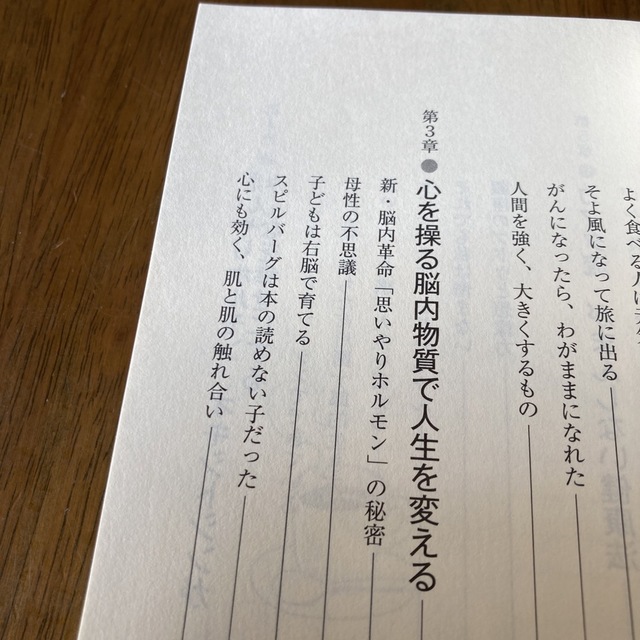 よく食べる人に
そよ風になって旅に出る
がんになったら、わがままになれた
人間を強く、大きくするもの
第3章●心を操る脳内物質で人生を変える
新・脳内革命「思いやりホルモン」の秘密
母性の不思議
子どもは右脳で育てる
スピルバーグは本の読めない子だった
心にも効く、肌と肌の触れ合い